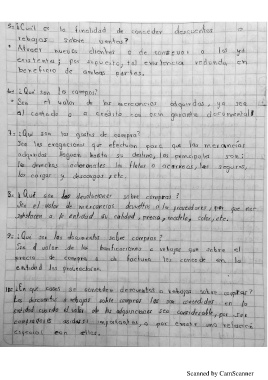 5.- ¿Cuál es la finalidad de conceder descuentos o
rebajas sobre ventas?
* Atraer nuevos clientes o de conservar a los ya
existentes; por supuesto, tal existencia redunda en
beneficio de ambas partes.
6.- ¿Qué son las compras?
* Son el valor de las mercancías adquiridas, ya sea
al contado o a crédito o con garantía documental.
7.- ¿Qué son los gastos de compra?
Son las erogaciones que efectúan para que las mercancías
adquiridas lleguen hasta su destino, las principales son:
los derechos aduanales, los fletes o acarreos, los seguros,
las cargas y descargas, etc.
8.- ¿Qué son las devoluciones sobre compras?
Son el valor de mercancías devueltas a los proveedores, por que no
satisface a la entidad su calidad, precio, modelo, color, etc.
9.- ¿Qué son los descuentos sobre compras?
Son el valor de las bonificaciones o rebajas que sobre el
precio de compra o de factura les concede en la
entidad los proveedores.
10.- ¿En que casos se conceden descuentos o rebajas sobre compras?
Los descuentos o rebajas sobre compras les son concedidos en la
entidad cuando el valor de las adquisiciones sea considerable, por ser
compradores asiduos importantes, o por existir una relación
especial con ellos.
Scanned by CamScanner